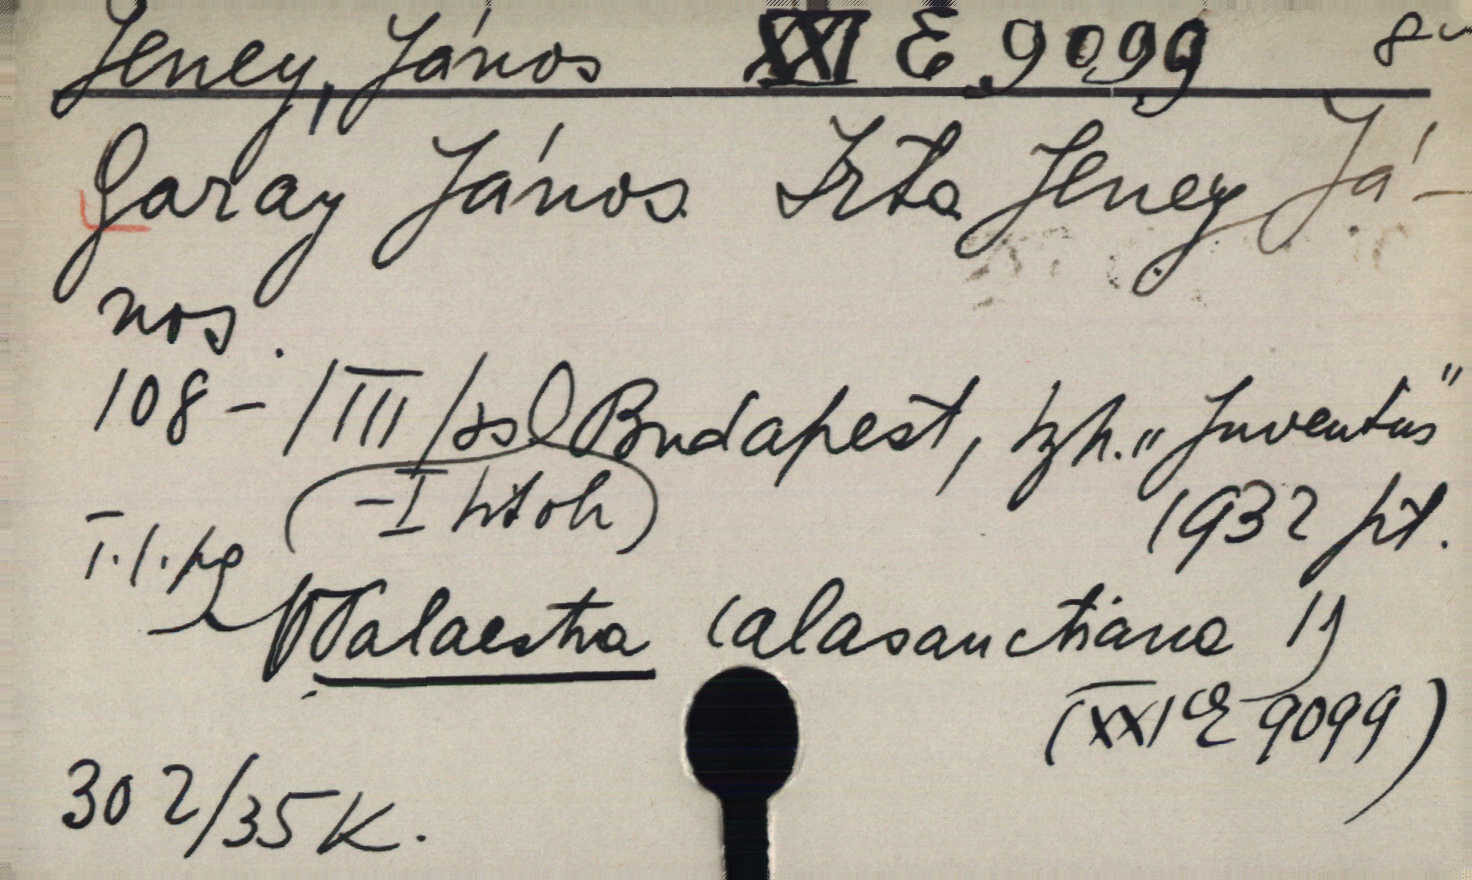 Jeney, János XXI E 9099 8°
Garay János Irta Jeney Já-
nos.
108 - /III/ Budapest, "Juventus"
(-I hitoh) 1932
Palaestra Calasanctiana 1)
(XXI E 9099)
302/35 K.